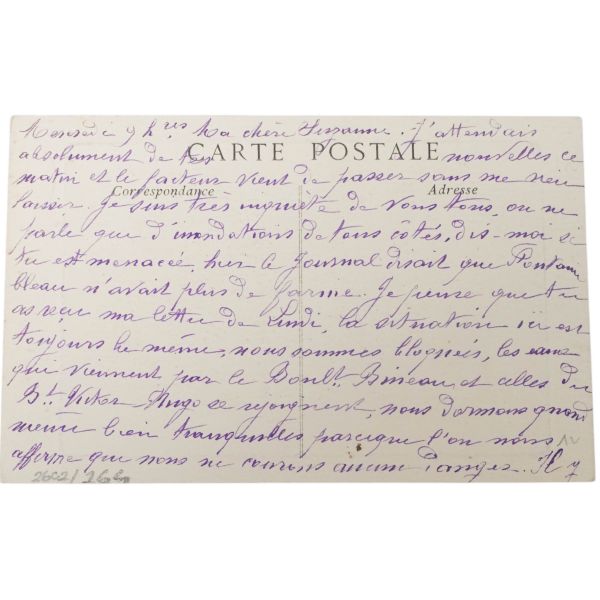 Mercredi 9 hres Ma chère Suzanne. J'attendais
absolument de tes nouvelles ce
CARTE POSTALE
matin et le facteur vient de passer sans me rien
Correspondance Adresse
laisser. Je suis très inquiète de vous tous, on ne
parle que d'inondations de tous côtés, dis-moi si
tu es menacée, hier le Journal disait que Fontaine
bleau n'avait plus de farine. Je pense que tu
as reçu ma lettre de Lundi, la situation ici est
toujours la même, nous sommes bloqués, les eaux
que viennent par le Boult. Bineau et celles du
Bt. Victor Hugo se rejoignent, nous dormons quand
même bien tranquilles parceque l'on nous
affirme que nous ne courons aucun danger. Il y